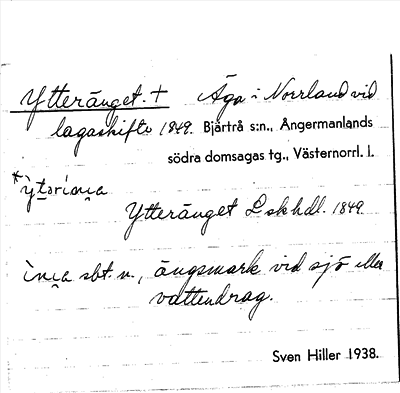 Ytteränget. † Äga i Norrland vid
lagaskifte 1849. Bjärtrå s:n., Ångermanlands
södra domsagas tg., Västernorrl. l.
Ytteränget L skhdl. 1849
sbt. n., ängsmark vid sjö eller
vattendrag.
Sven Hiller 1938.